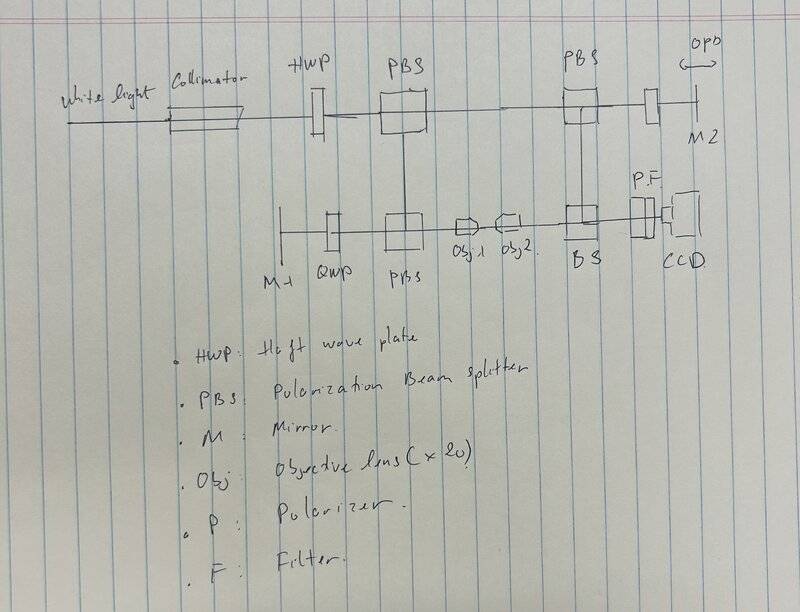 White light
Collimator
HWP
PBS
PBS
OPD
M2
P.F
M1
QWP
PBS
Obj1
Obj2.
BS
CCD
. HWP: Haft wave plate
. PBS: Polarization Beam splitter
. M : Mirror.
. Obj : Objective lens (x20)
. P : Polarizer.
. F : Filter.